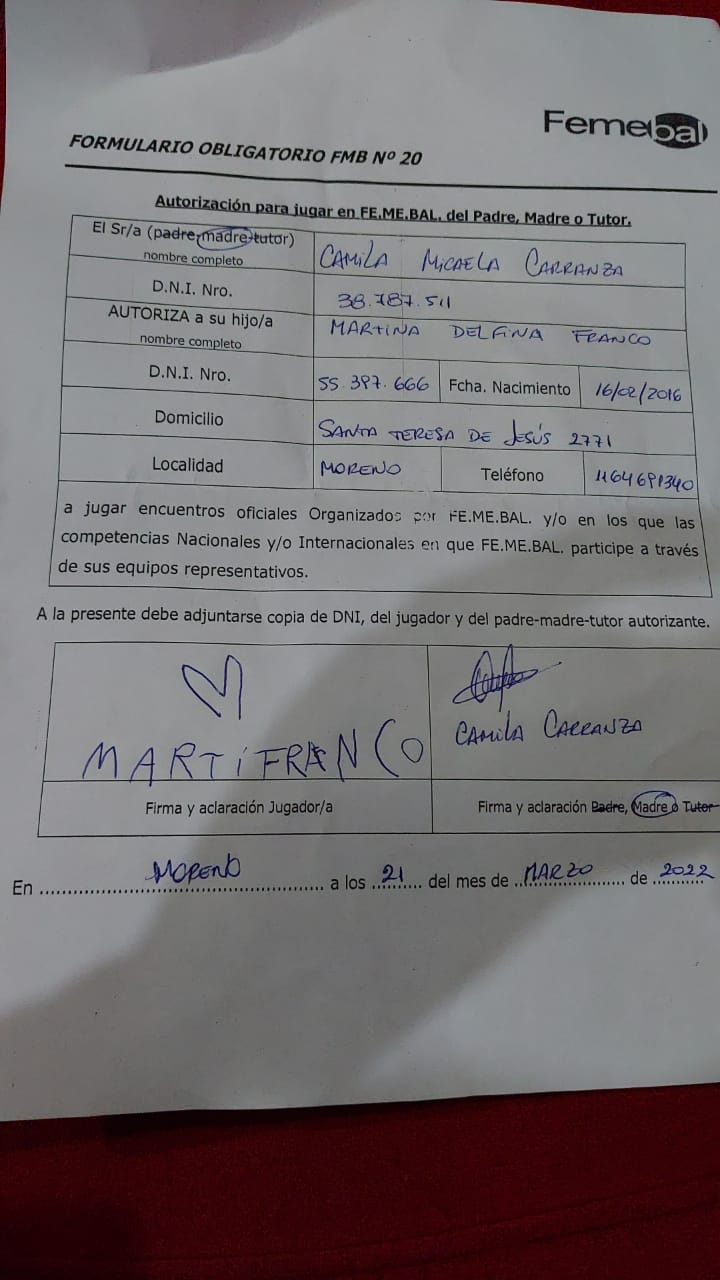 Femebal
FORMULARIO OBLIGATORIO FMB Nº 20
Autorización para jugar en FE.ME.BAL. del Padre, Madre o Tutor.
El Sr/a (padre-madre-tutor)
nombre completo
CAMILA MICAELA CARRANZA
D.N.I. Nro.
38.787.511
AUTORIZA a su hijo/a
nombre completo
MARTINA DELFINA FRANCO
D.N.I. Nro.
55.397.666
Fcha. Nacimiento
16/02/2016
Domicilio
SANTA TERESA DE JESÚS 2771
Localidad
MORENO
Teléfono
1164691340
a jugar encuentros oficiales Organizados por FE.ME.BAL. y/o en los que las
competencias Nacionales y/o Internacionales en que FE.ME.BAL. participe a través
de sus equipos representativos.
A la presente debe adjuntarse copia de DNI, del jugador y del padre-madre-tutor autorizante.
MARTiFRANCO
CAMILA CARRANZA
Firma y aclaración Jugador/a
Firma y aclaración Padre, Madre o Tutor
En MORENO a los 21 del mes de MARZO de 2022